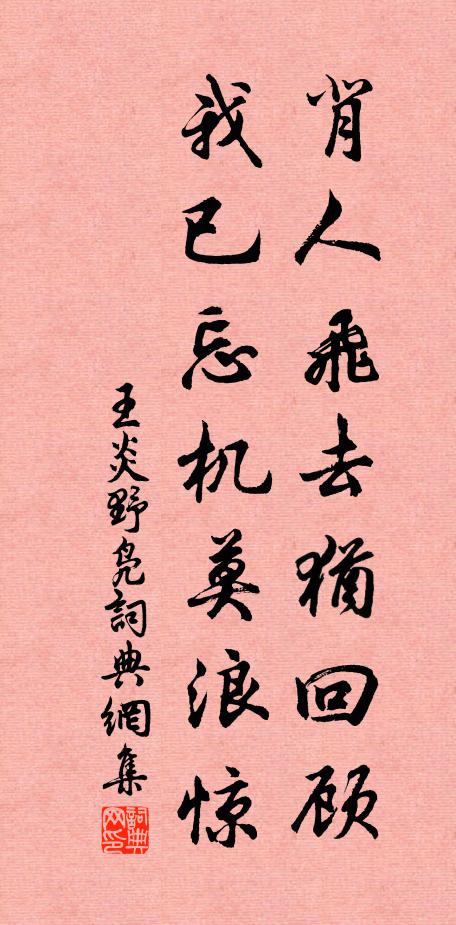 背人飛去猶回顾
我已忘机莫浪惊
王炎野凫詞典網集
詞典网印